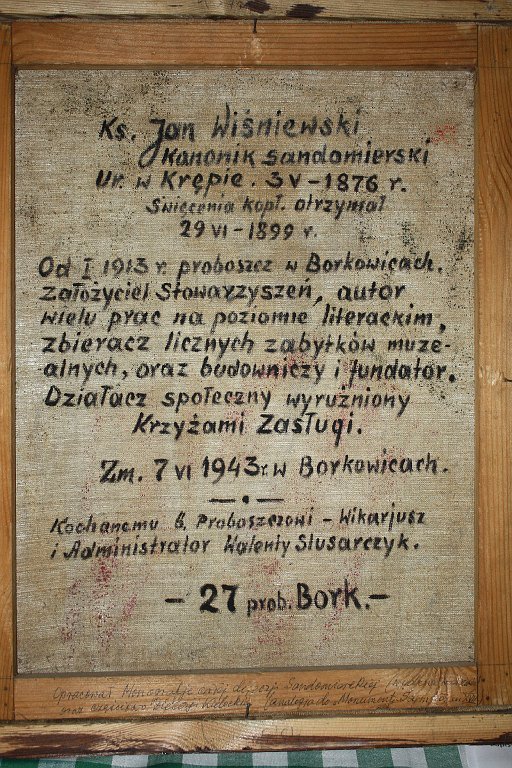 Ks. Jan Wiśniewski
Kanonik sandomierski
Ur. w Krępie. 3 V – 1876 r.
Święcenia kapł. otrzymał
29 VI – 1899 r.
Od I 1913 r. proboszcz w Borkowicach.
Założyciel Stowarzyszeń, autor
wielu prac na poziomie literackim,
zbieracz licznych zabytków muze-
alnych, oraz budowniczy i fundator.
Działacz społeczny wyrużniony
Krzyżami Zasługi.
Zm. 7 VI 1943 r. w Borkowicach.
Kochanemu b. Proboszczowi – Wikarjusz
i Administrator Walenty Ślusarczyk.
– 27 prob. Bork. –
Opracował Monografje całej diecezji Sandomierskiej
oraz częściowo Diecezji Kieleckiej